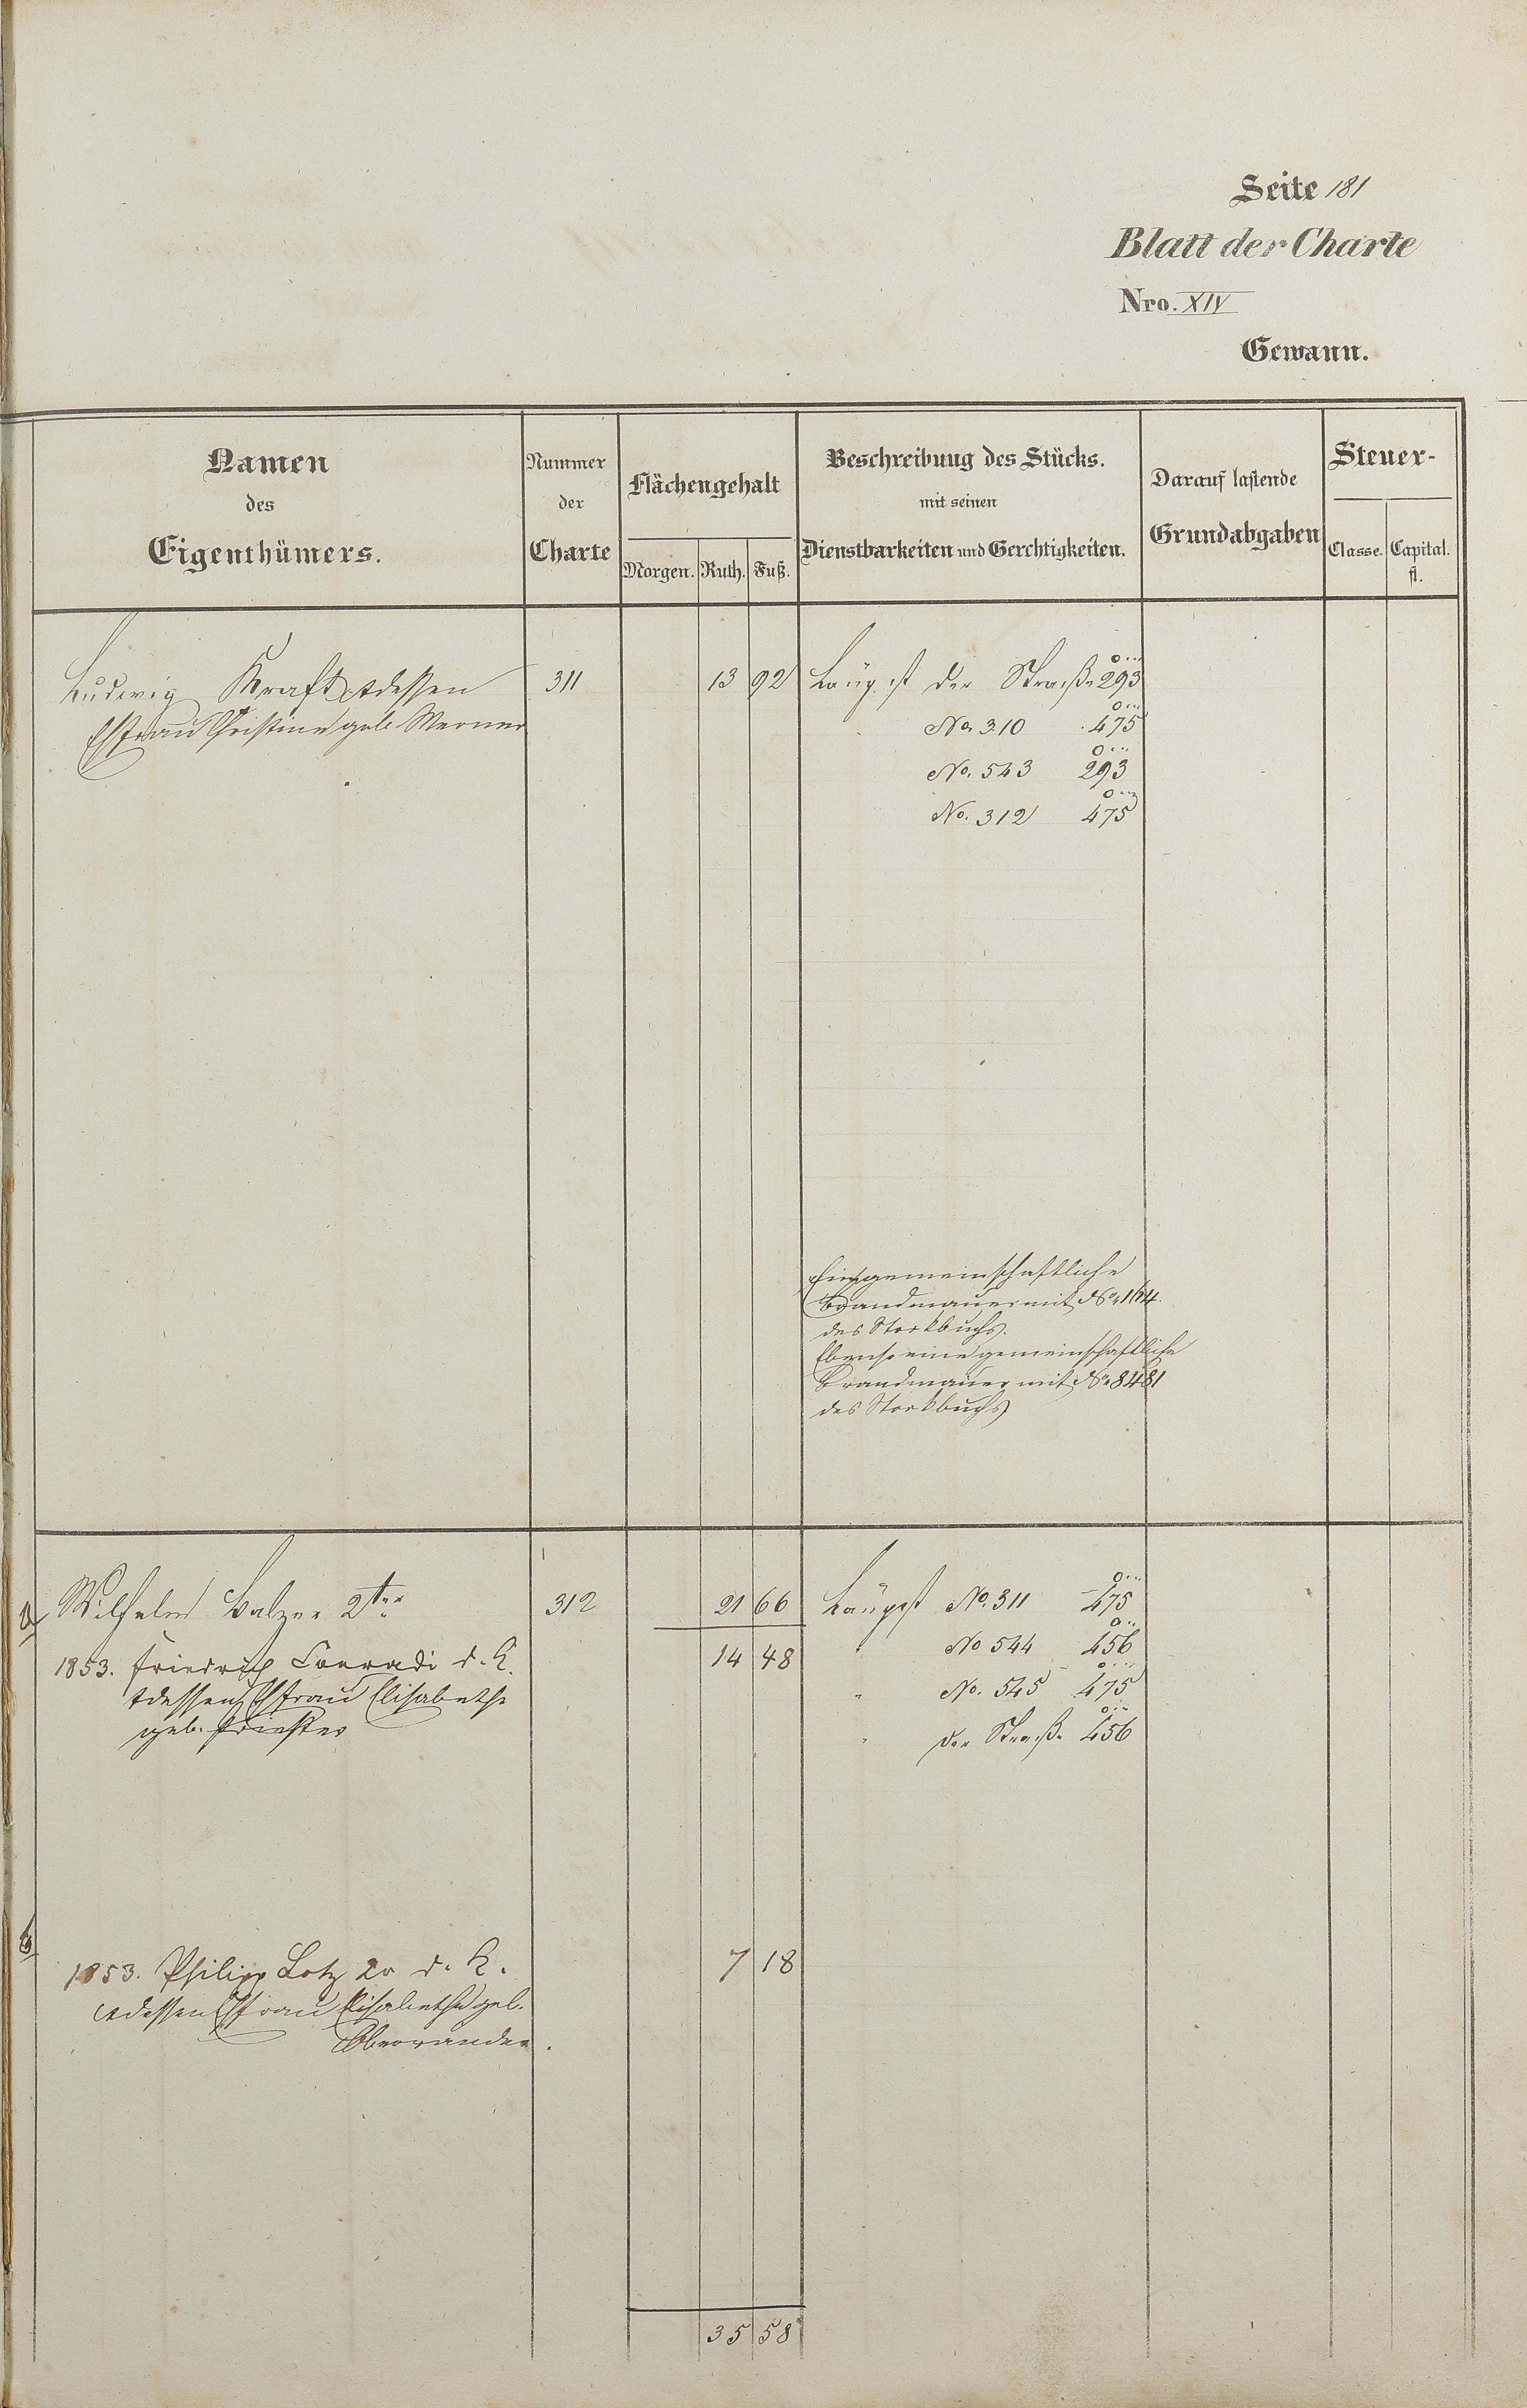 Seite 181
Blatt der Charte
Nro. XIV
Gewann.
Namen
des
Eigenthümers.
Nummer
der
Charte
Flächengehalt
Morgen. Ruth. Fuß.
Beschreibung des Stücks.
mit seinen
Dienstbarkeiten und Gerechtigkeiten.
Darauf lastende
Grundabgaben
Steuer-
Classe. Capital.
fl.
Ludwig Kraft & dessen 311 13 92 Längst der Straße 293
Ehfrau Christine geb. Werner No. 310 475
No. 543 293
No. 312 475
Eine gemeinschaftliche
Brandmauer mit No.
des Stockbuchs.
Ebenso eine gemeinschaftliche
Brandmauer mit No. 8481
des Stockbuchs
a, Wilhelm Balzer 2ter 312 21 66 Längst No. 311 475
1853. Friedrich Conradi d. K. 14 48 " No 544 456
& dessen Ehfrau Elisabethe " No. 545 475
geb. Priester " der Straße 456
b
1853. Philipp Lotz 2r d. K. 7 18
& dessen Ehfrau Elisabethe geb.
35 58